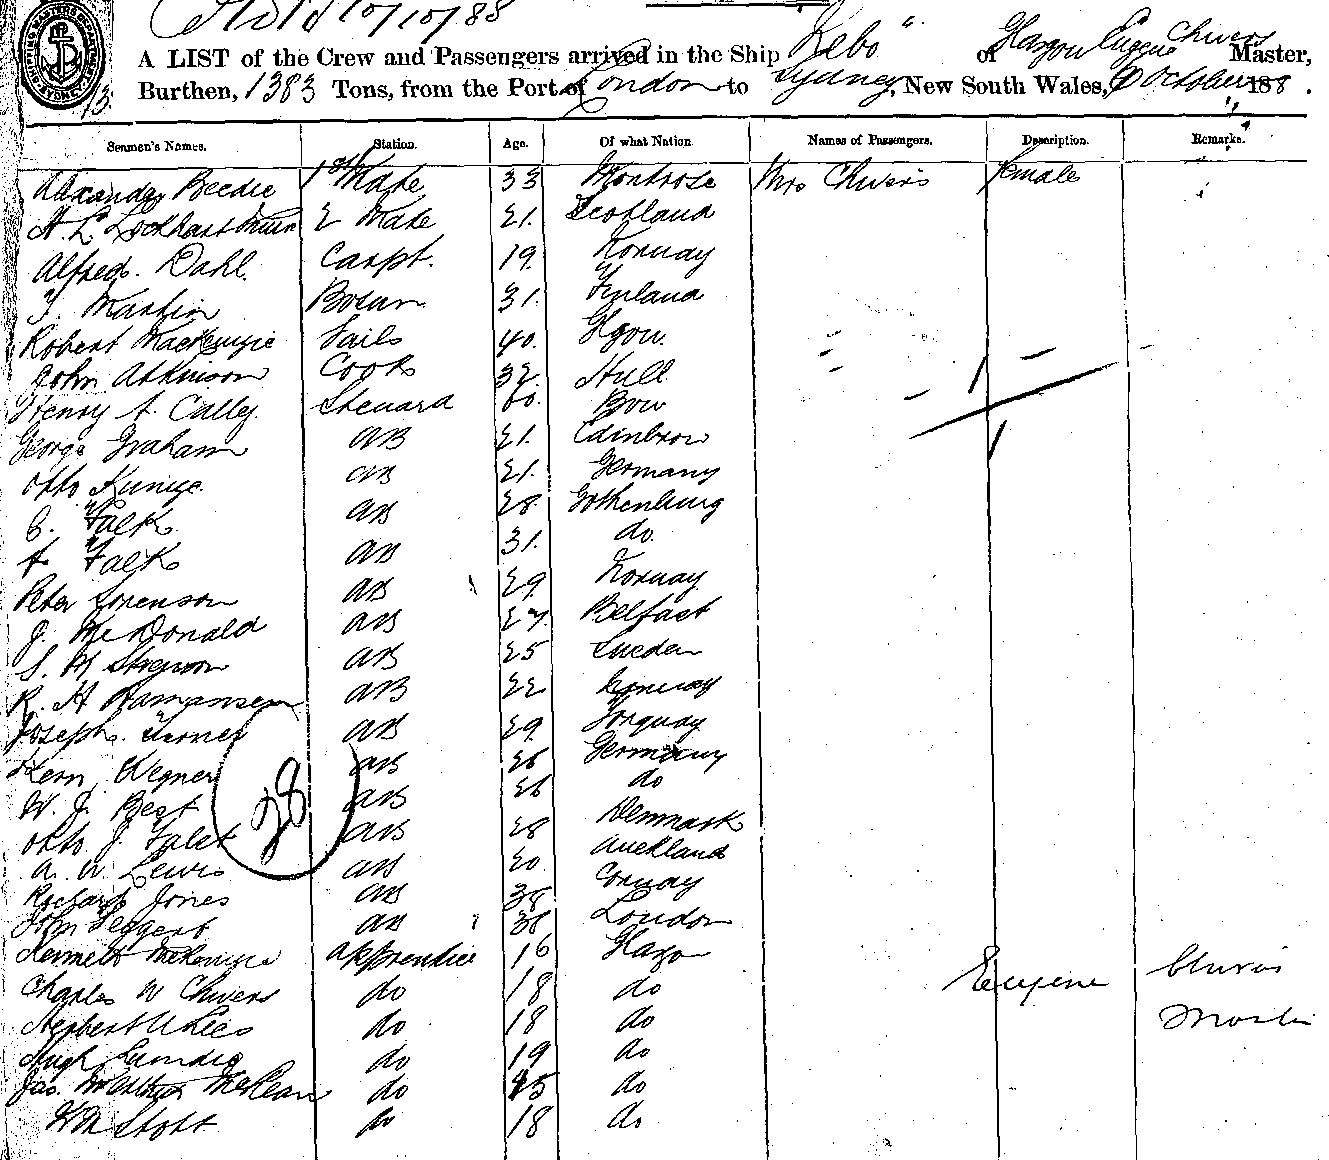 10/10/88
A LIST of the Crew and Passengers arrived in the Ship "Kebo" of Glasgow Eugene Chivers Master,
Burthen, 1383 Tons, from the Port of London to Sydney, New South Wales, October 1888.
Seamen's Names. Station. Age. Of what Nation. Names of Passengers. Description. Remarks.
Alexander Beedie 1st Mate 33 Montrose Mrs Chivers female
A. L. Lockhart 2 Mate 21. Scotland
Alfred. Dahl. Carpt. 19. Norway
Martin Bosun 31. Finland
Robert MacKenzie Sails 40. Glgow.
John Atkinson Cook 32. Hull
Henry A. Calley. Steward 60. Bow
George Graham AB 21. Edinbro
Otto Kunige. AB 21. Germany
C. Falk AB 28. Gothenburg
A Falk AB 31. do.
Peter Sorenson AB 29 Norway
J. McDonald AB 27. Belfast
S. M AB 25 Sweden
R. H Hamansen AB 22 Norway
Joseph. Turner AB 29 Torquay
Herm. Wegner AB 26 Germany
W. J. Best AB 26 do
Otto J. AB 28 Denmark
A. W. Lewis AB 20. Auckland
Richard Jones AB 38 Conway
John Teggert AB 38 London
28
Kenneth McKenzie Apprentice 16 Glasgo
Charles W Chivers do 18 do Eugene Chivers
Herbert W Lees do 18 do Master
Hugh Lundie do 19 do
Jas. McLean do 15 do
Wm Stott do 18 do